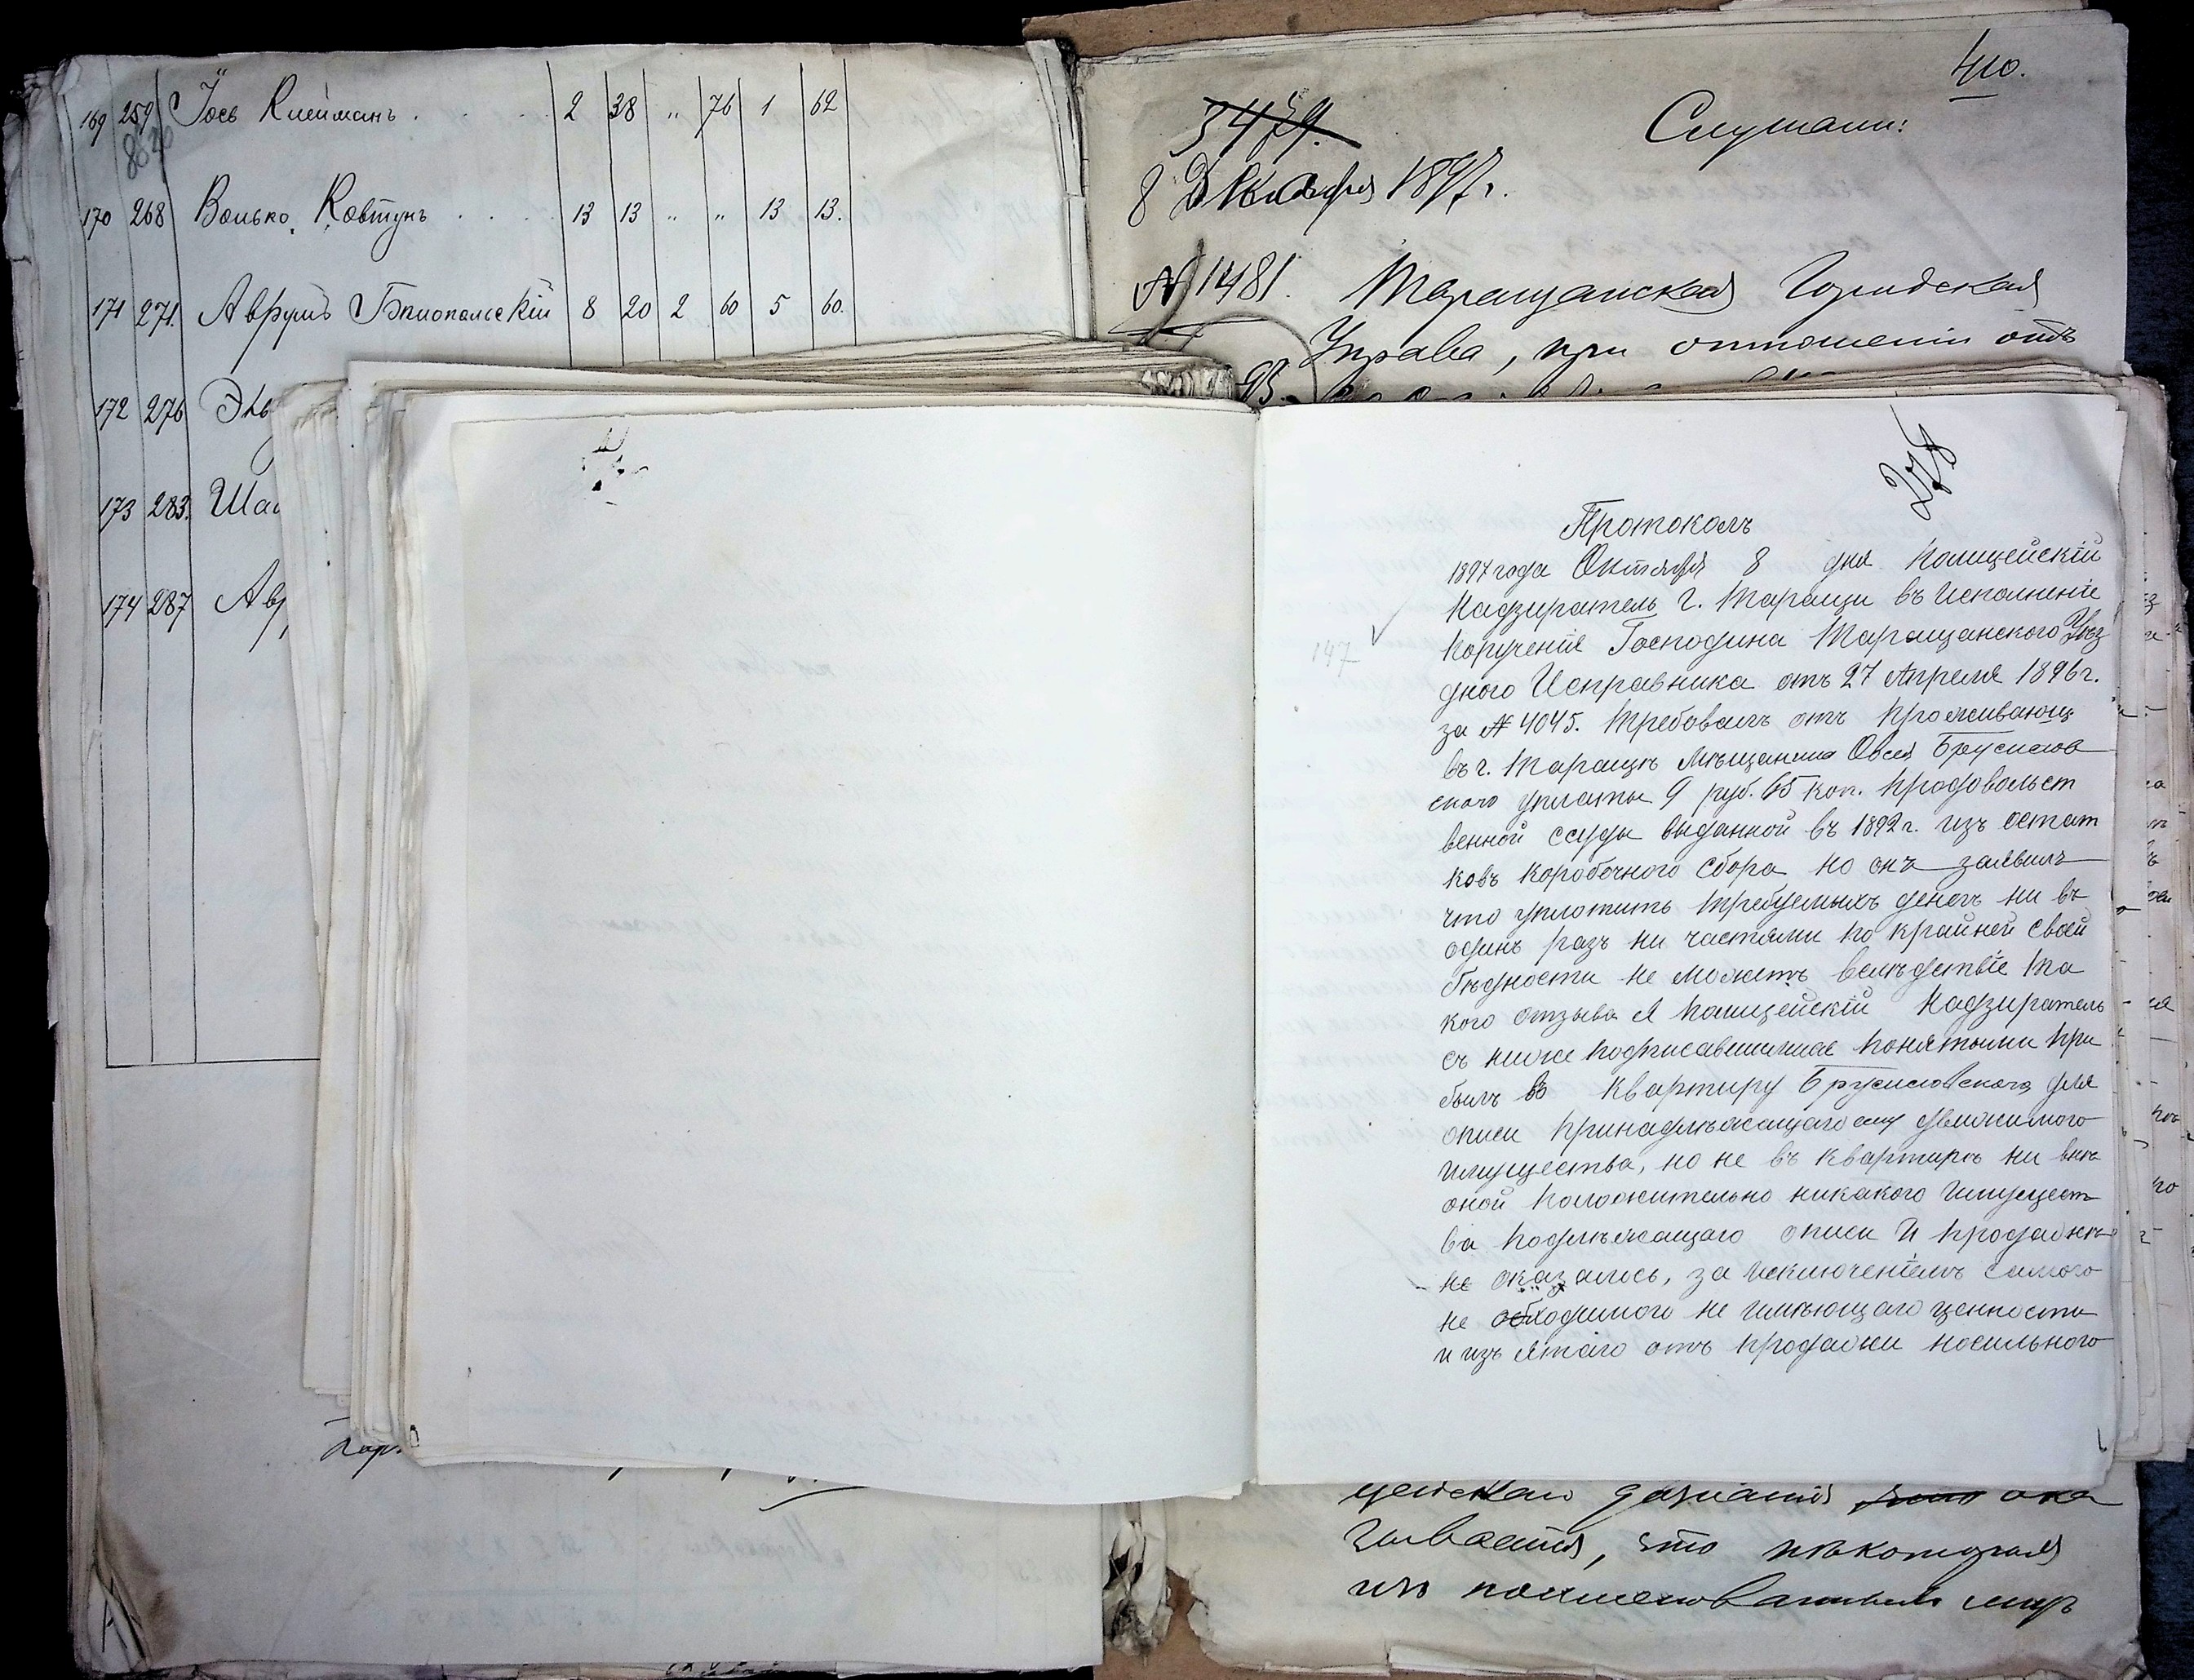 169 259 Іось Клейманъ . . . . 2 38 „ 76 1 62
8620
170 268 Волько Ковтунъ . . . . 13 13 „ „ 13 13.
171 271. Аврумъ Бѣлопольскій 8 20 2 60 5 60.
172 276
173 283.
174 287
410.
3479.
Слушали:
8 Декабря 1897 г.
№ 14181. Таращанская Городская
Управа, при отношеніи отъ
93.
278
Протоколъ
1897 года Октября 8 дня Полицейскій
Надзиратель г. Таращи въ исполненіе
порученія Господина Таращанскаго Уѣз
днаго Исправника отъ 27 Апреля 1896 г.
147
за № 4045. требовалъ отъ проживающ
въ г. Таращѣ мѣщанина Овсея Брусилов
скаго уплаты 9 руб. 65 коп. продовольст
венной ссуды выданной въ 1892 г. изъ остат
ковъ коробочнаго сбора но онъ заявилъ
что уплотить требуемыхъ денегъ ни въ
одинъ разъ ни частями по крайней своей
бѣдности не можетъ вслѣдствіе та
кого отзыва Я Полицейскій Надзиратель
съ ниже подписавшимися понятыми при
былъ въ квартиру Брусиловского для
описи принадлѣжащаго ему движимого
имущества, но не въ квартирѣ ни внѣ
оной положительно никакого имущест
ва подлѣжащаго описи и продажѣ
не оказалось, за исключеніемъ самого
не обходимого не имѣющаго ценности
и изъ ятаго отъ продажи носильного
цейскаго дознанія что ока
зывается, что нѣкоторыя
изъ поименованныхъ лицъ